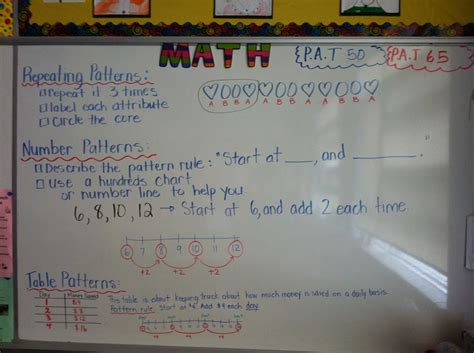 MATH
P.A.T 50
P.A.T 65
Repeating Patterns:
repeat it 3 times
label each attribute
Circle the core
A B B A
A
A
Number Patterns:
Describe the pattern rule: "Start at ___, and ______.
Use a hundreds chart
or number line to help you
6, 8, 10, 12 → Start at 6, and add 2 each time.
6 7 8 9 10 11 12
+2 +2 +2
Table Patterns:
Day Money Saved
1 $4
2 $8
3 $12
4 $16
This table is about keeping track about how much money is saved on a daily basis.
Pattern rule: Start at $4. Add $4 each day.
+4 +4 +4